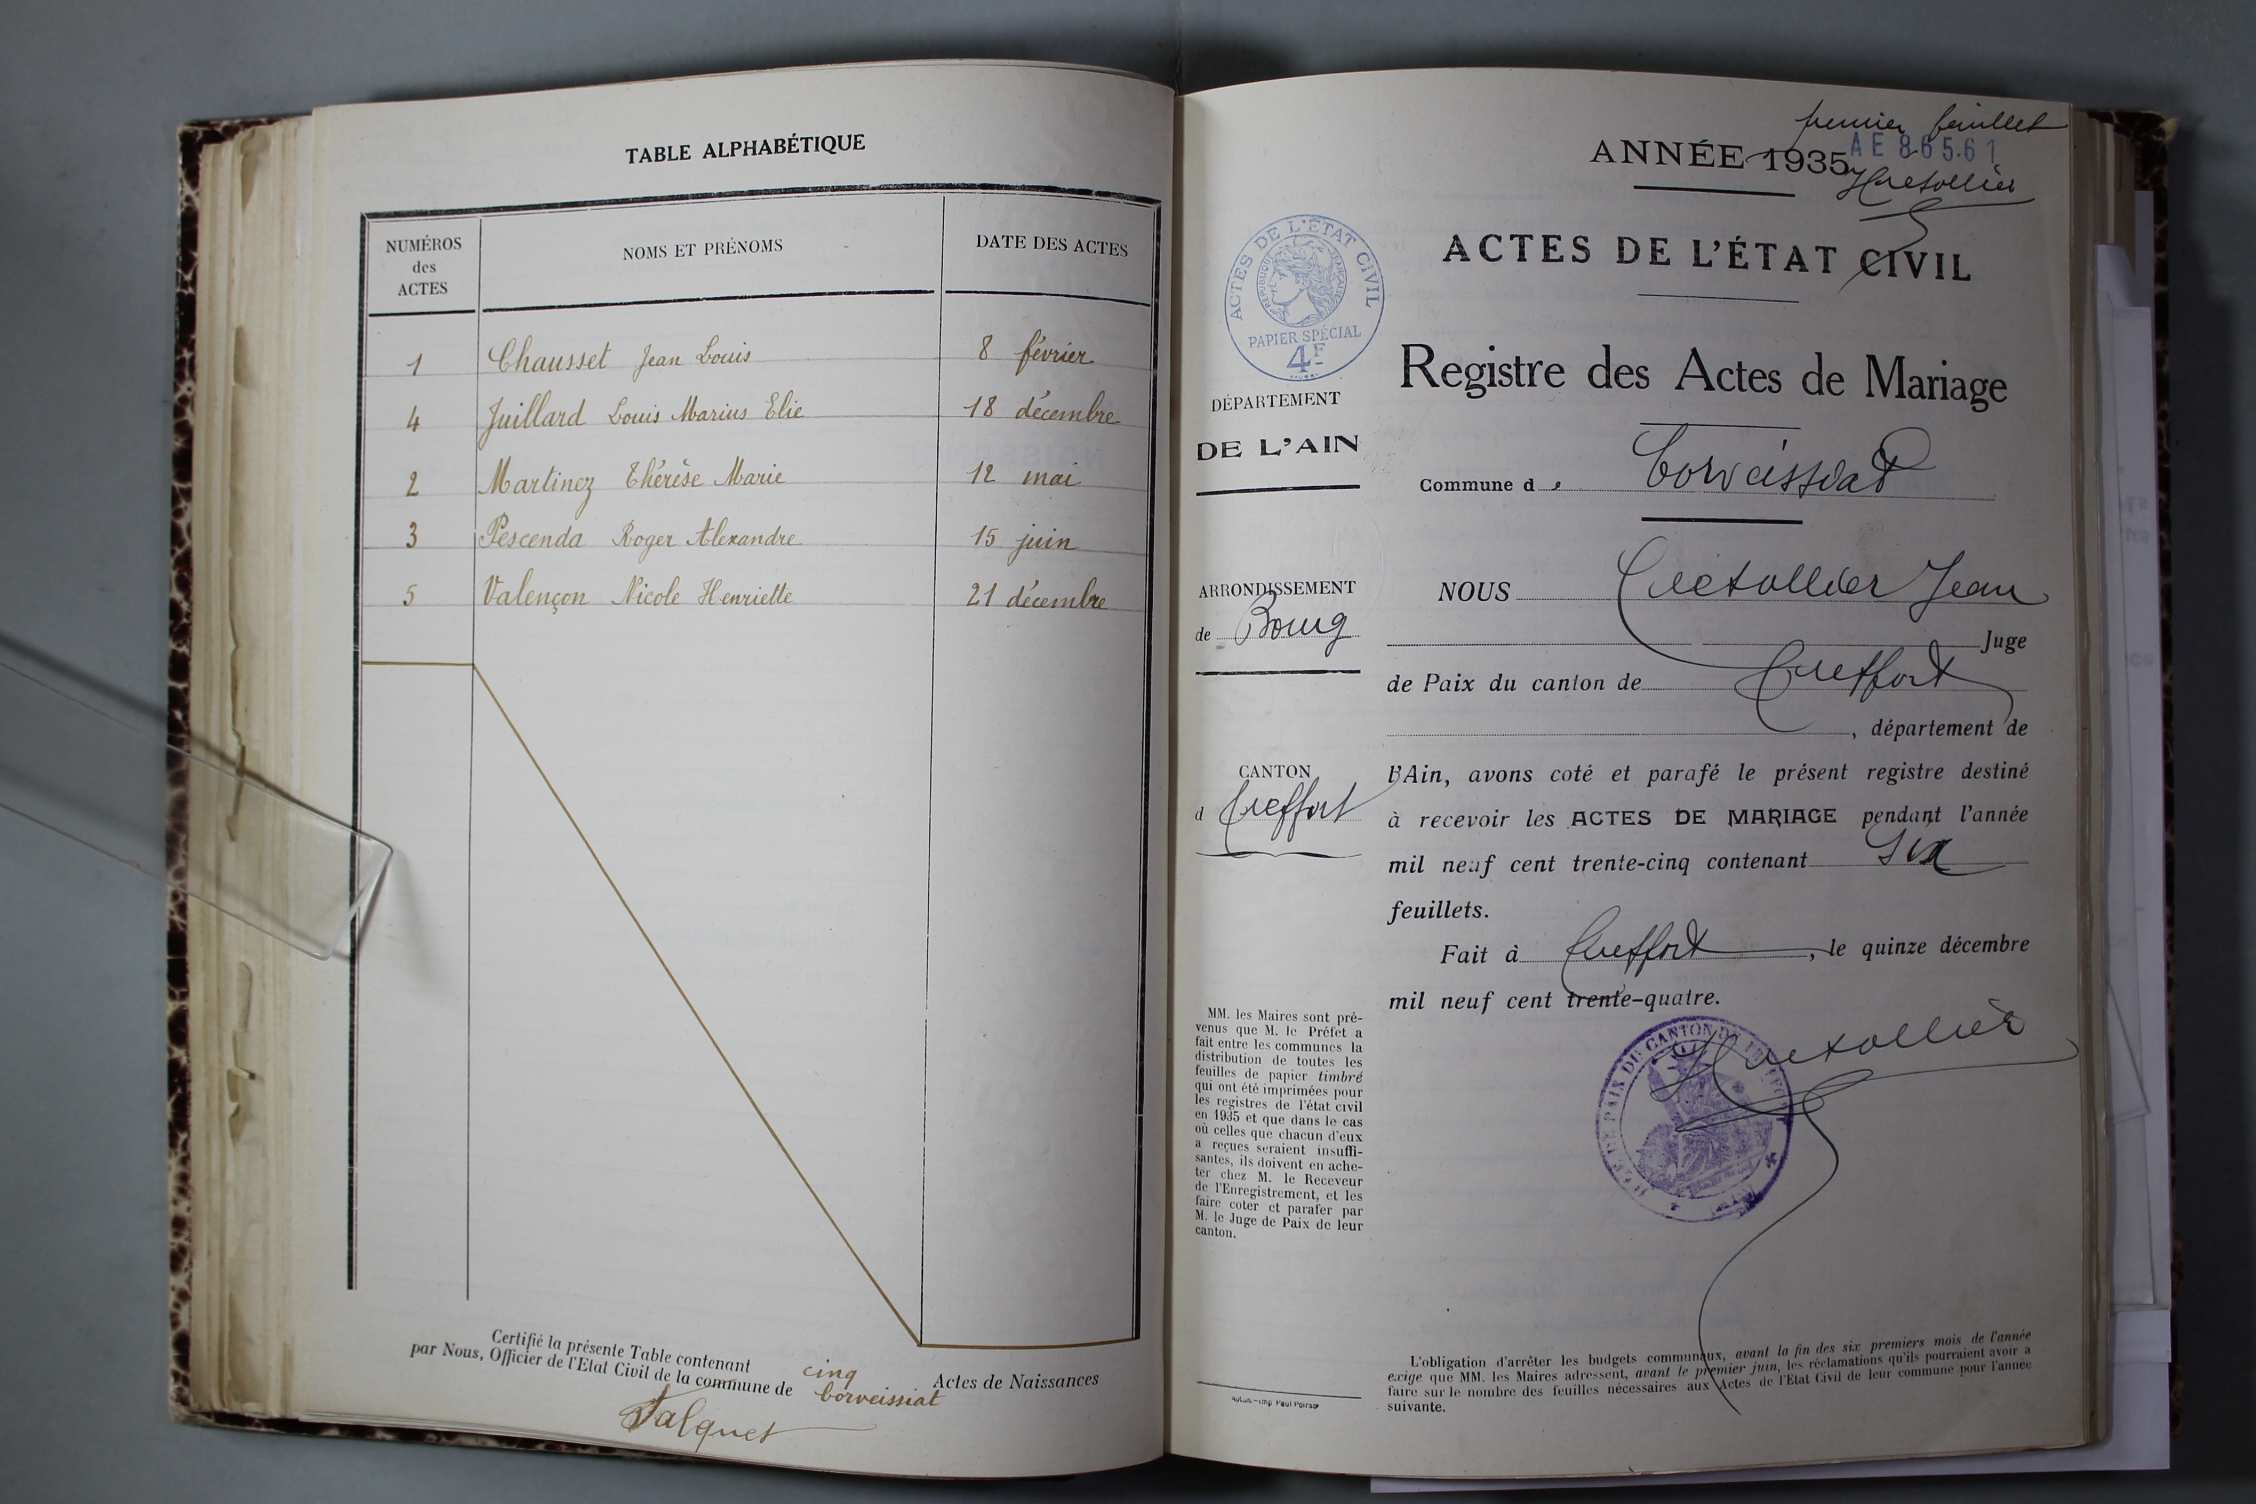 TABLE ALPHABÉTIQUE
NUMÉROS
des
ACTES
NOMS ET PRÉNOMS
DATE DES ACTES
1 Chausset Jean Louis 8 février
4 Juillard Louis Marius Elie 18 décembre
2 Martinez Thérèse Marie 12 mai
3 Pescenda Roger Alexandre 15 juin
5 Valençon Nicole Henriette 21 décembre
Certifié la présente Table contenant cinq Actes de Naissances
par Nous, Officier de l'Etat Civil de la commune de Corveissiat
premier feuillet
ANNÉE 1935
AE 86561
ACTES DE L'ÉTAT CIVIL
ACTES DE L'ÉTAT CIVIL
RÉPUBLIQUE FRANÇAISE
PAPIER SPÉCIAL
4F
Registre des Actes de Mariage
DÉPARTEMENT
DE L'AIN
Commune de Corveissiat
ARRONDISSEMENT
de Bourg
CANTON
d Treffort
MM. les Maires sont pré-
venus que M. le Préfet a
fait entre les communes la
distribution de toutes les
feuilles de papier timbré
qui ont été imprimées pour
les registres de l'état civil
en 1935 et que dans le cas
où celles que chacun d'eux
a reçues seraient insuffi-
santes, ils doivent en ache-
ter chez M. le Receveur
de l'Enregistrement, et les
faire coter et parafer par
M. le Juge de Paix de leur
canton.
Autun.—Imp. Paul Poirson
NOUS Jean
Juge
de Paix du canton de Treffort
, département de
l'Ain, avons coté et parafé le présent registre destiné
à recevoir les ACTES DE MARIAGE pendant l'année
mil neuf cent trente-cinq contenant Six
feuillets.
Fait à Treffort, le quinze décembre
mil neuf cent trente-quatre.
L'obligation d'arrêter les budgets communaux, avant la fin des six premiers mois de l'année
exige que MM. les Maires adressent, avant le premier juin, les réclamations qu'ils pourraient avoir à
faire sur le nombre des feuilles nécessaires aux Actes de l'Etat Civil de leur commune pour l'année
suivante.